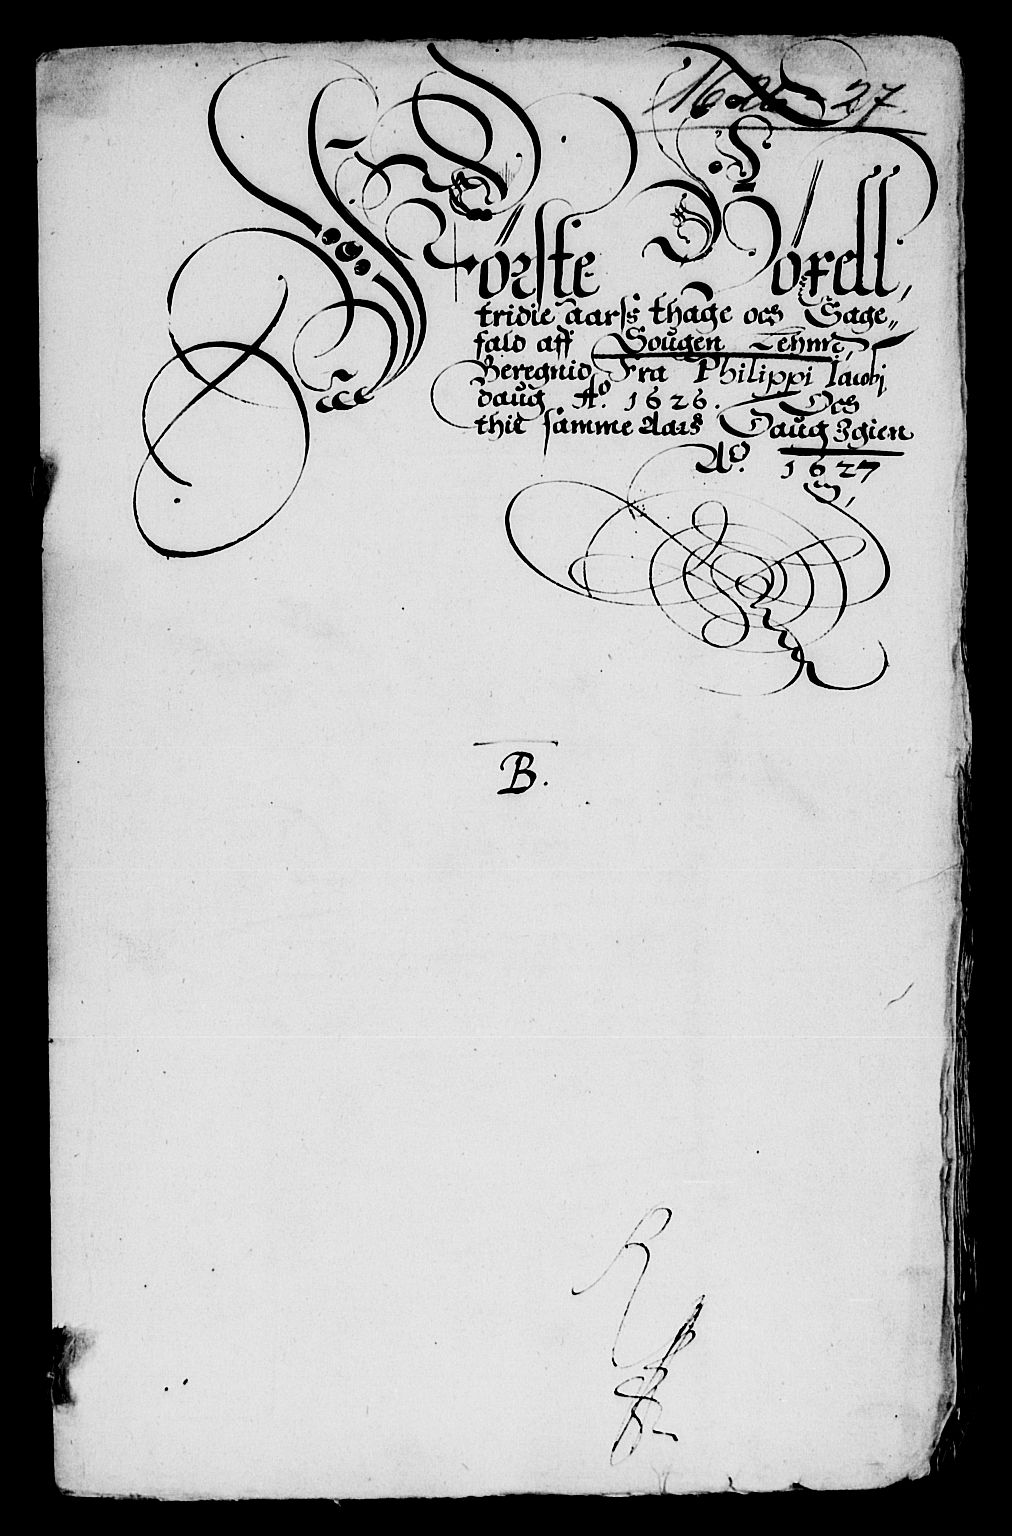 27
Förste Boxell,
tridie aarss thage och Sage„
fald aff Sougen Lehnn,
Beregnid Fra Philippi Iacobj
daug A⁰. 1626. Och
thil samme Aars Daug Igien
A⁰. 1627
B.